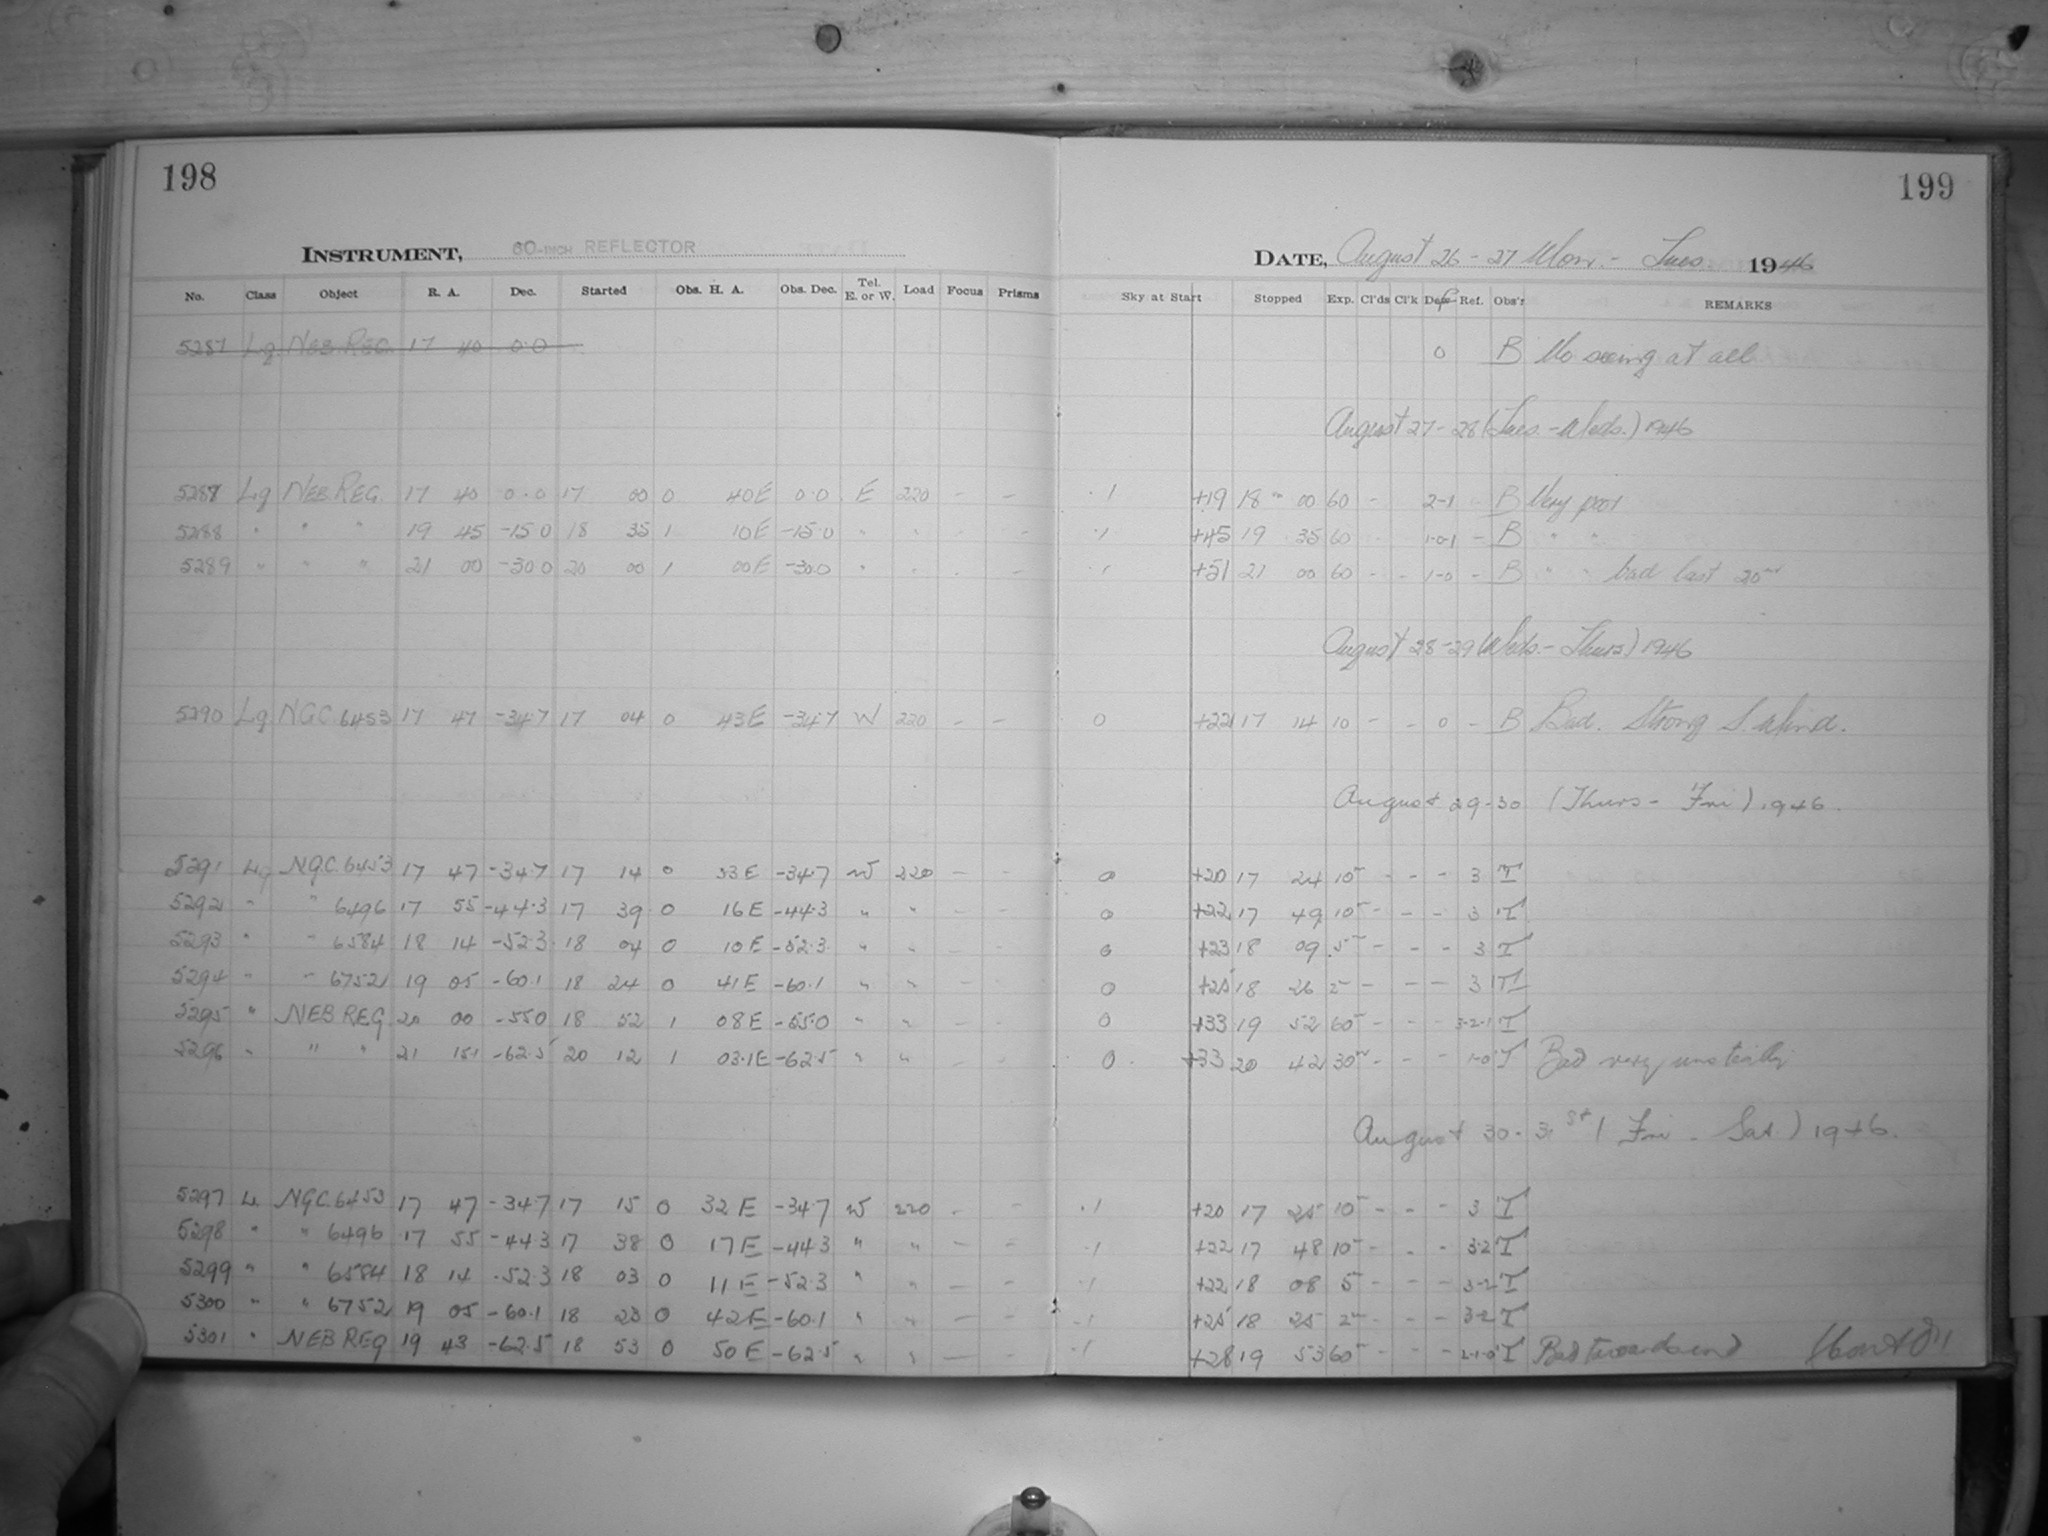 198
199
INSTRUMENT, 60-INCH REFLECTOR
DATE, August 26 - 27 Mon. - Tues. 1946
No. Class Object R. A. Dec. Started Obs. H. A. Obs. Dec. Tel. E. or W. Load Focus Prisms Sky at Start Stopped Exp. Cl'ds Cl'k Def Ref. Obs'r REMARKS
5287 Lg. NEB. REG. 17 40 0.0 0 B No seeing at all
August 27 - 28 (Tues. - Weds.) 1946
5287 Lg NEB REG. 17 40 0.0 17 00 0 40E 0.0 E 220 - - .1 +19 18 00 60 - 2-1 - B Very poor
5288 " " " 19 45 -15.0 18 35 1 10E -15.0 " " . - .1 +45 19 35 60 - 1-0-1 - B " "
5289 " " " 21 00 -30.0 20 00 1 00E -30.0 " " . - .1 +51 21 00 60 - - 1-0 - B " " bad last 20m
August 28-29 (Weds. - Thurs) 1946
5290 Lg. NGC 6453 17 47 -34.7 17 04 0 43E -34.7 W 220 - - 0 +22 17 14 10 - - 0 - B Bad. Strong S. Wind.
August 29-30 (Thurs - Fri) 1946.
5291 Lg NGC. 6453 17 47 -34.7 17 14 0 33E -34.7 W 220 - - 0 +20 17 24 10 - - - 3 T
5292 " " 6496 17 55 -44.3 17 39 0 16E -44.3 " " - - 0 +22 17 49 10 - - - 3 T
5293 " " 6584 18 14 -52.3 18 04 0 10E -52.3 " " - - 0 +23 18 09 5 - - - 3 T
5294 " " 6752 19 05 -60.1 18 24 0 41E -60.1 " " - - 0 +25 18 26 2 - - - 3 T
5295 " NEB REG 20 00 -55.0 18 52 1 08E -55.0 " " - - 0 +33 19 52 60 - - - 3-2-1 T
5296 " " " 21 15.1 -62.5 20 12 1 03.1E -62.5 " " - - 0 +33 20 42 30 - - - 1-0 T Bad very unsteady
August 30-31st (Fri - Sat) 1946.
5297 L. NGC. 6453 17 47 -34.7 17 15 0 32E -34.7 W 220 - - .1 +20 17 25 10 - - - 3 T
5298 " " 6496 17 55 -44.3 17 38 0 17E -44.3 " " - - .1 +22 17 48 10 - - - 3-2 T
5299 " " 6584 18 14 -52.3 18 03 0 11E -52.3 " " - - .1 +22 18 08 5 - - - 3-2 T
5300 " " 6752 19 05 -60.1 18 23 0 42E -60.1 " " - - .1 +25 18 25 2 - - - 3-2 T
5301 " NEB REG 19 43 -62.5 18 53 0 50E -62.5 " " - - .1 +28 19 53 60 - - - 2-1-0 T Bad towards end